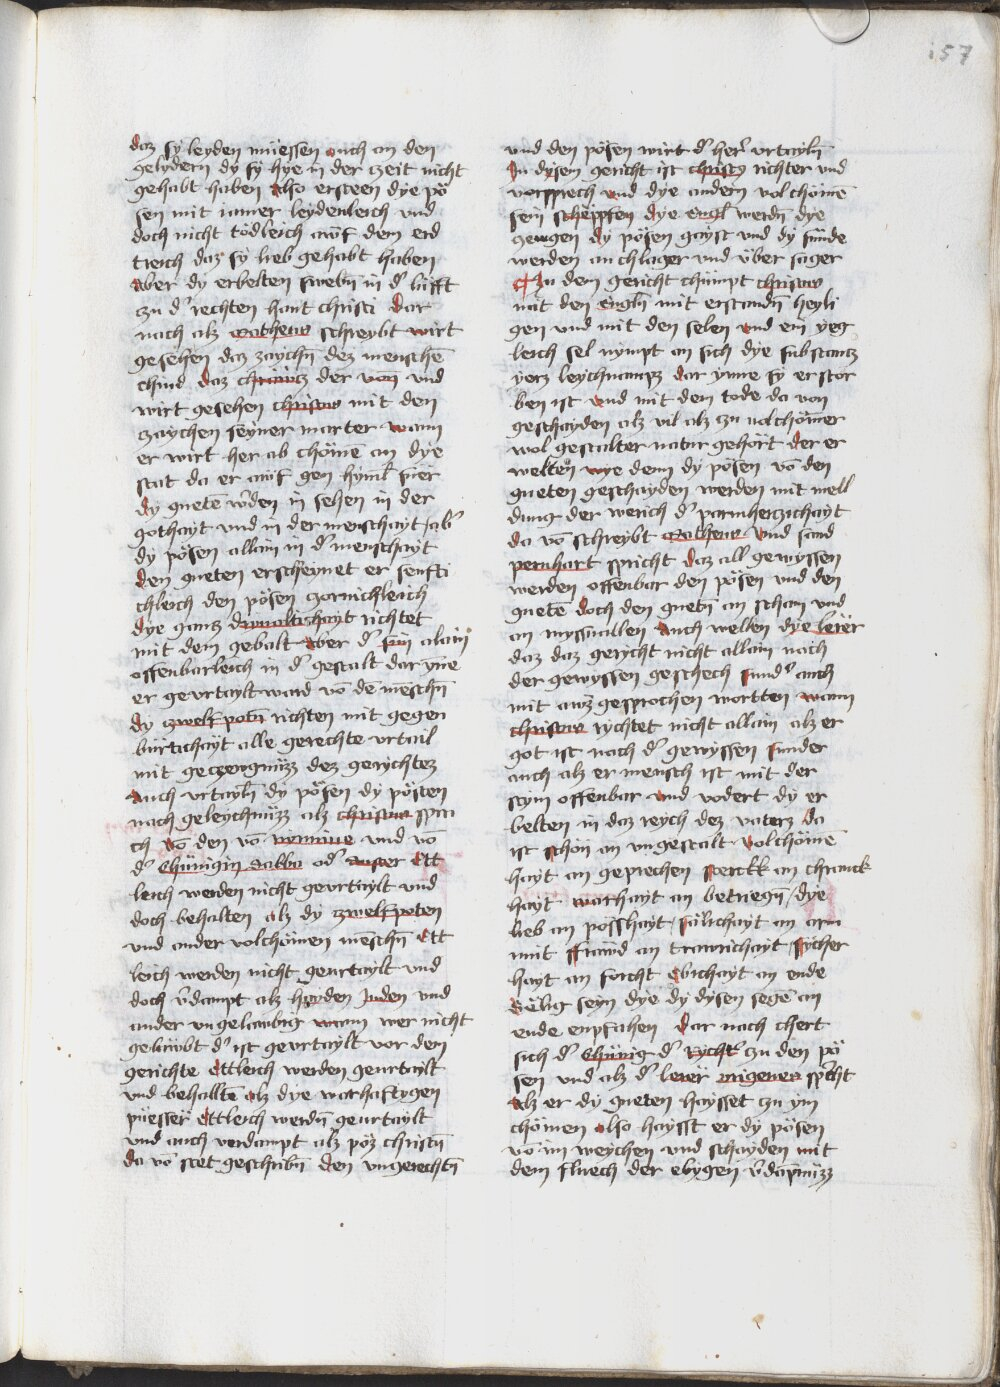 157
daz sy leyden müessen auch an den
gelydern dy sy hye in der zeit nicht
gehabt haben Also ersteen dye pö
sen mit iamer leydenleich und
doch nicht tödleich auf dem erd
treich daz sy lieb gehabt haben
Aber dy erbelten swebn̄ in d' lüfft
zu d' rechten hant christi Dar
nach alz matheus schreybt wirt
gesehen daz zaychn̄ dez menschē
chind daz der und
wirt gesehen christus mit den
zaychen seyner marter wann
er wirt her ab chömē an dye
stat da er auf gen hyml fuer
dy guetē w'den in sehen in der
gothayt und in der menschayt ab'
dy pösen allain in d' menschayt
den gueten erscheynet er senfti
chleich den pösen zornichleich
dye gantz richtet
mit dem gebalt Aber d' sun alain
offenbarleich in d' gestalt dar ynne
er geurtaylt ward vō dē mēschn̄
dy zwelfpotn̄ richten mit gegen
bürtichayt alle gerechte urtail
mit geczeugnüzz dez gerychtez
Auch urtayln̄ dy pösen dy pösten
nach geleychnüzz alz christus spri
ch vō den vō nynnive und vō
d' chünigin Sabba od' auster Ett
leich werden nicht geurtaylt und
doch behalten alz dy zwelfpoten
und ander volchömen mēschn̄ Ett
leich werden nicht geurtaylt und
doch v'dampt alz hayden Juden und
ander ungelaubig wann wer nicht
gelaubt d' ist geurtaylt vor dem
gerichte Ettleich werden geurtaylt
und behaltē alz dye warhaftygen
püesser Ettleich werdn̄ geurtaylt
und auch verdampt alz pöz christn̄
da vō stet geschribn̄ den ungerechtn̄
und den pösen wirt d' her' urtayln̄
In dysem gericht ist christus richter und
vorsprech und dye andern volchömē
sein schepfen dye engl werdn̄ dye
zeugen dy pösen gayst und dy sünde
werden anchlager und über sager
Zu dem gericht chümpt christus
mit den engln̄ mit erstandn̄ heyli
gen und mit den selen und ein yeg
leich sel nympt an sich dye substantz
yerz leychnampz dar ynne sy erstor
ben ist und mit dem tode da von
geschayden alz vil alz zu volchömer
wol gestalter natur gehört der er
welten wye denn dy pösen vō den
gueten geschayden werden mit mell
dung der werich d' parmherzichayt
da vō schreybt matheus und sand
pernhart spricht daz all gewyssen
werden offenbar den pösen und den
guetē doch den guetn̄ an scham und
an myssuallen Auch wellen dye lerer
daz daz gerycht nicht allain nach
der gewyssen geschech sund' auch
mit auzgesprochen wortten wann
christus rychtet nicht allain alz er
got ist nach d' gewyssen sunder
auch alz er mensch ist mit der
stym offenbar und vodert dy er
belten in daz reych dez vaterz da
ist schön an ungestalt volchömē
hayt an geprechen sterckk an chranck
hayt warhayt an betriegn̄ dye
lieb an posshayt sälichayt an arm
mit frawd an trawrichayt sycher
hayt an forcht Ebichayt an ende
Sälig seyn dye dy dysen segē an
ende enpfahen Dar nach chert
sich d' chünig d' rycht' zu den pö
sen und alz d' lerer origenes sp'cht
Alz er dy gueten haysset zu ym
chömen also haysst er dy pösen
vō im weychen und schayden mit
dem fluech der ebygen v'dāpnüzz